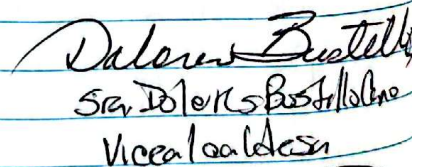 Dolores Bustillo
Sra Dolores Bustillo
Vicealcaldesa